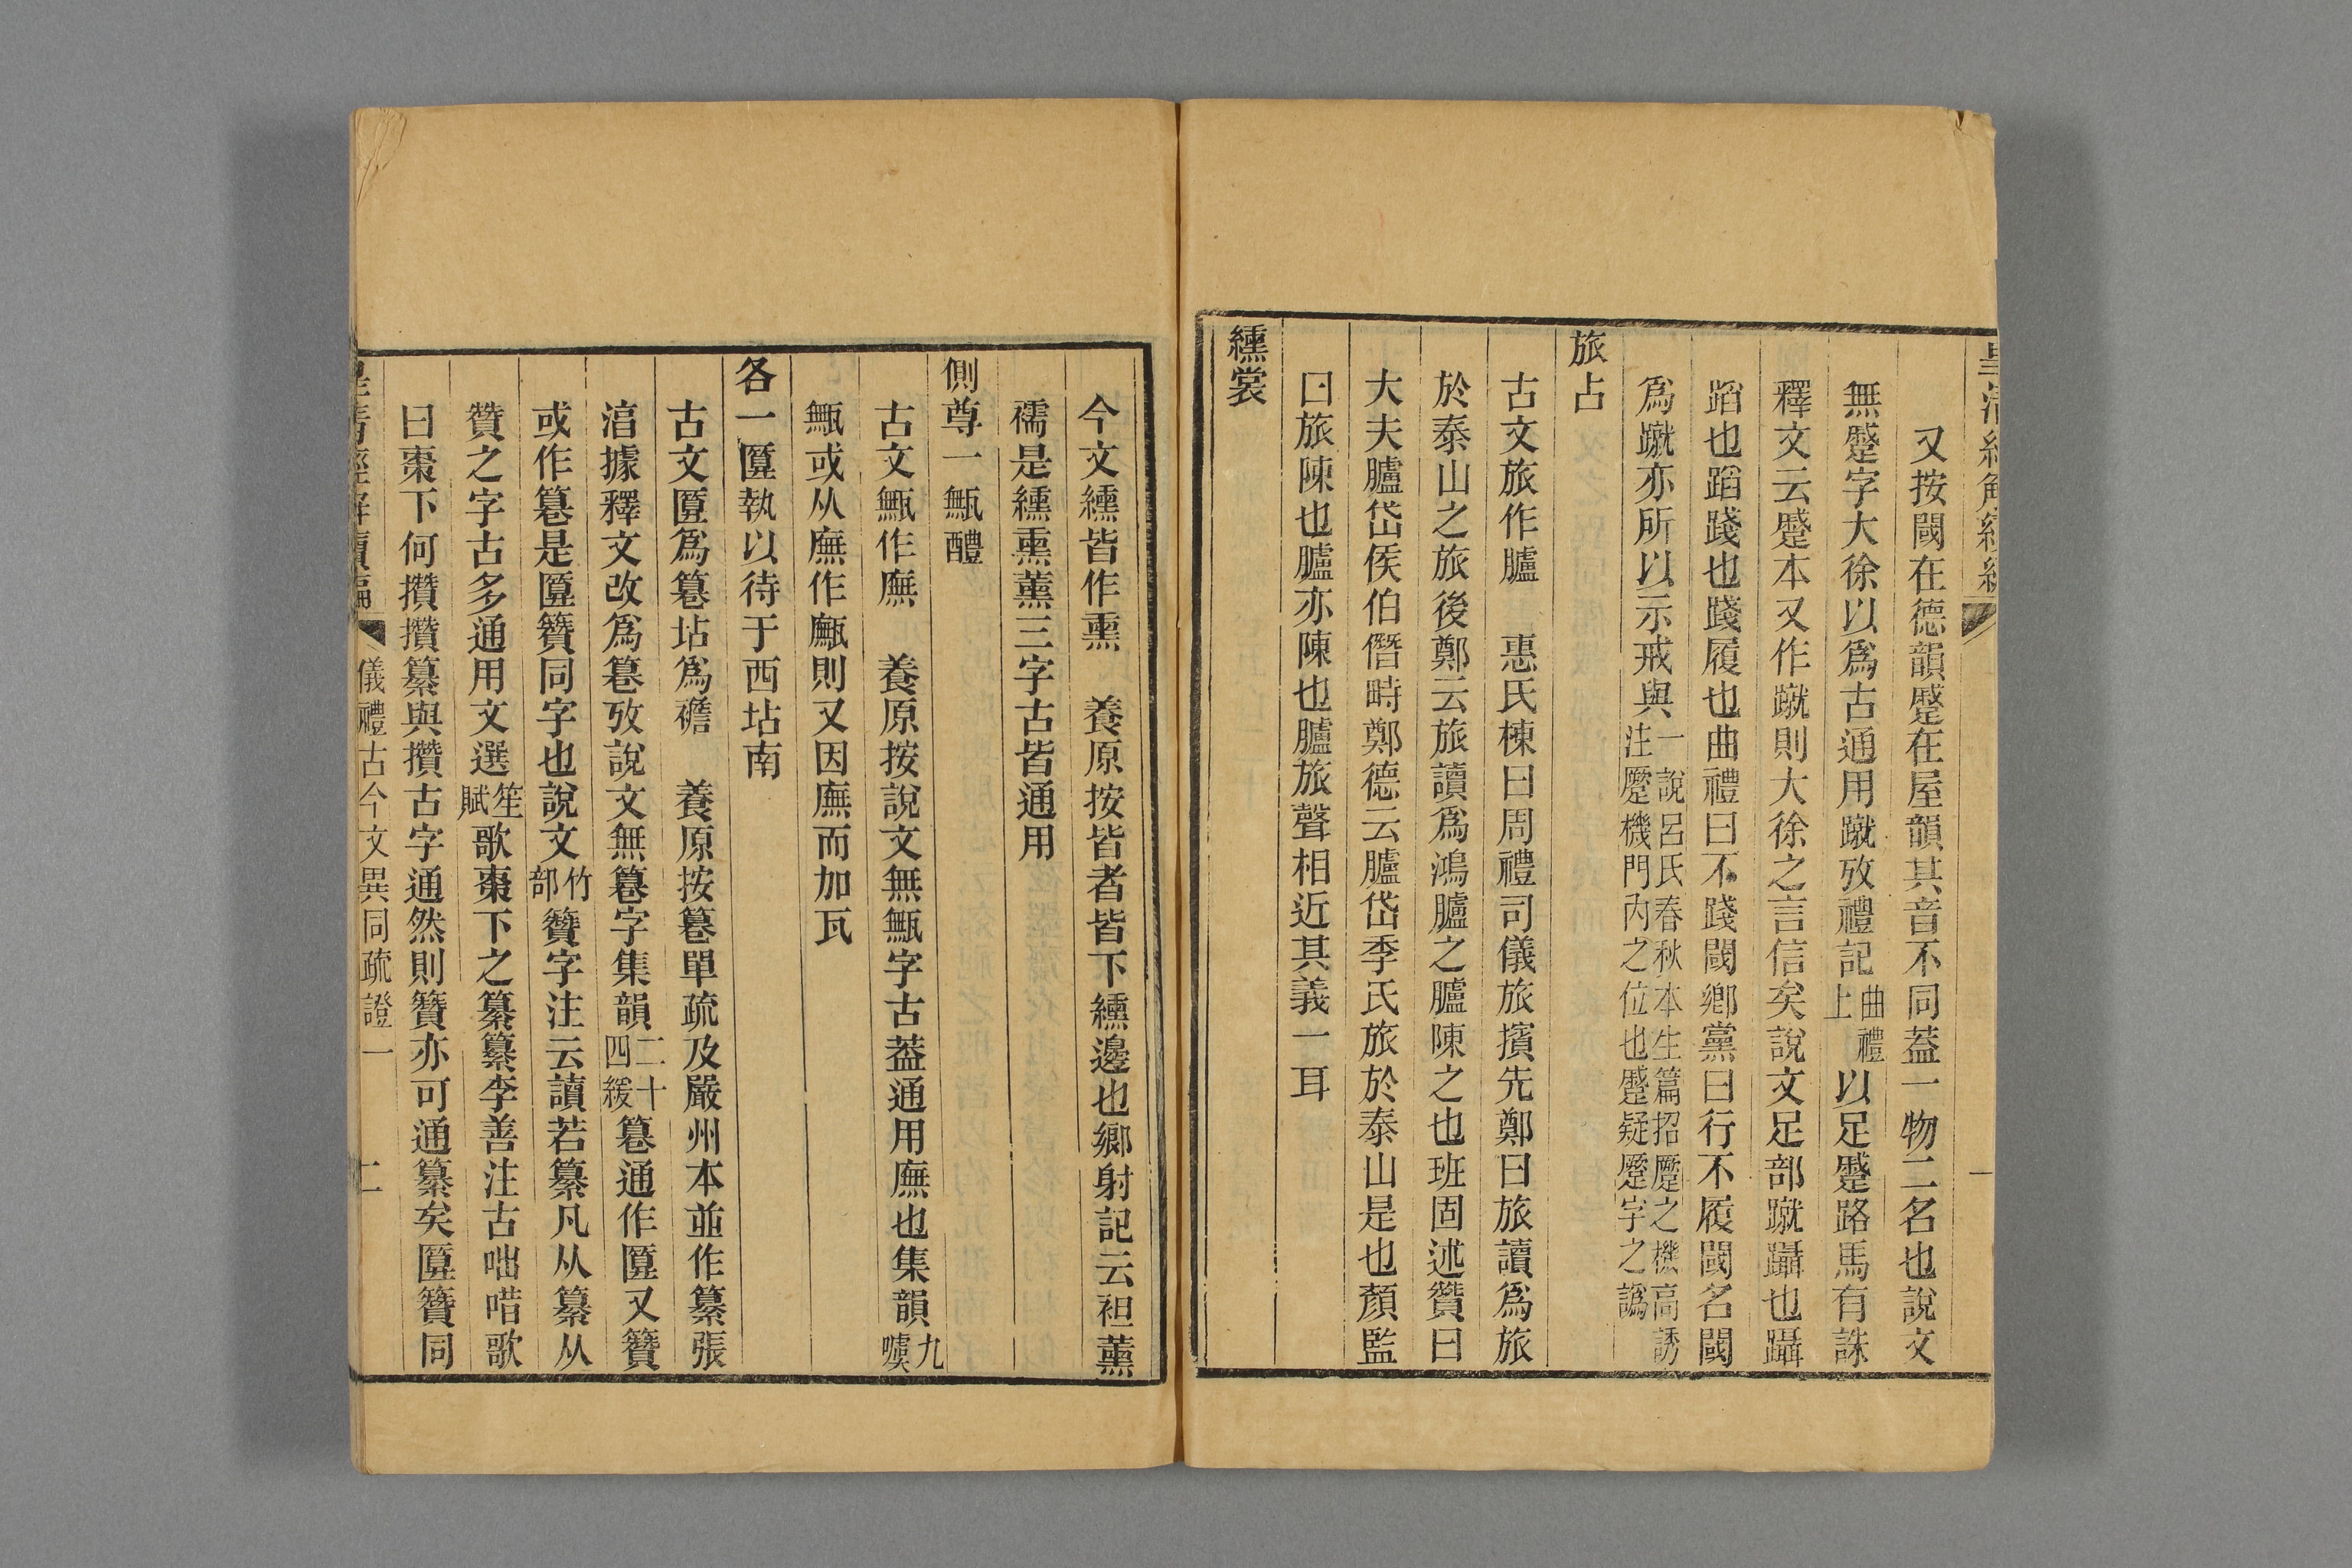 皇清經解續編 一
又按閾在德韻蹙在屋韻其音不同蓋一物二名也說文
無蹙字大徐以爲古通用蹴攷禮記曲禮上以足蹙路馬有誅
釋文云蹙本又作蹴則大徐之言信矣說文足部蹴躡也躡
蹈也蹈踐也踐履也曲禮曰不踐閾鄉黨曰行不履閾名閾
爲蹴亦所以示戒與一說呂氏春秋本生篇招蹷之機高誘注蹷機門內之位也蹙疑蹷字之譌
旅占
古文旅作臚 惠氏棟曰周禮司儀旅擯先鄭曰旅讀爲旅
於泰山之旅後鄭云旅讀爲鴻臚之臚陳之也班固述贊曰
大夫臚岱侯伯僭畤鄭德云臚岱季氏旅於泰山是也顏監
曰旅陳也臚亦陳也臚旅聲相近其義一耳
纁裳
今文纁皆作熏 養原按皆者皆下纁邊也鄉射記云袒薰
襦是纁熏薰三字古皆通用
側尊一甒醴
古文甒作廡 養原按說文無甒字古葢通用廡也集韻九噳
甒或从廡作㼲則又因廡而加瓦
各一匴執以待于西坫南
古文匴爲篹坫爲襜 養原按篹單疏及嚴州本並作纂張
淳據釋文改爲篹攷說文無篹字集韻二十四緩篹通作匴又籫
或作篹是匴籫同字也說文竹部籫字注云讀若纂凡从纂从
贊之字古多通用文選笙賦歌棗下之纂纂李善注古咄喏歌
曰棗下何攢攢纂與攢古字通然則籫亦可通纂矣匴籫同
皇清經解續編 儀禮古今文異同疏證一 二